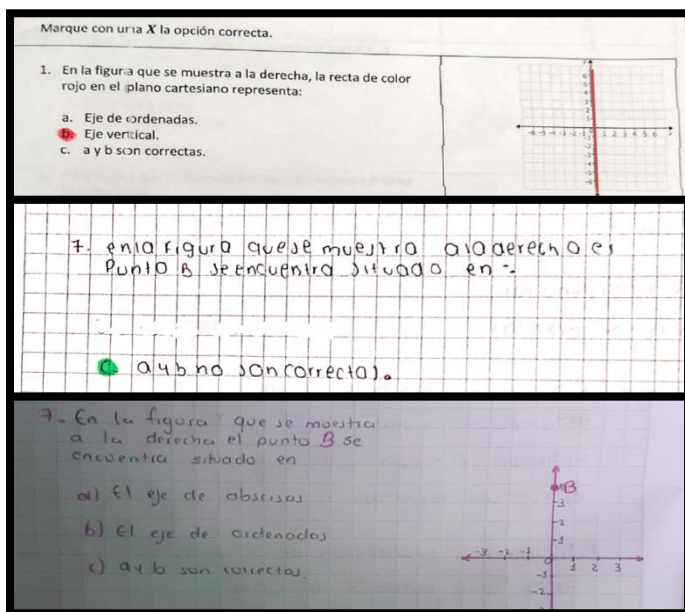 Marque con una X la opción correcta.
1. En la figura que se muestra a la derecha, la recta de color
rojo en el plano cartesiano representa:
a. Eje de ordenadas.
b. Eje vertical.
c. a y b son correctas.
-6 -5 -4 -3 -2 -1 1 2 3 4 5 6
7. en la figura que se muestra a la derecha el
Punto B se encuentra situado en :
c. a y b no son correctas.
7.- En la figura que se muestra
a la derecha el punto B se
encuentra situado en
a) El eje de abscisas
b) El eje de ordenadas
c) a y b son correctas.
B
3
2
1
-3 -2 -1 0 1 2 3
-1
-2